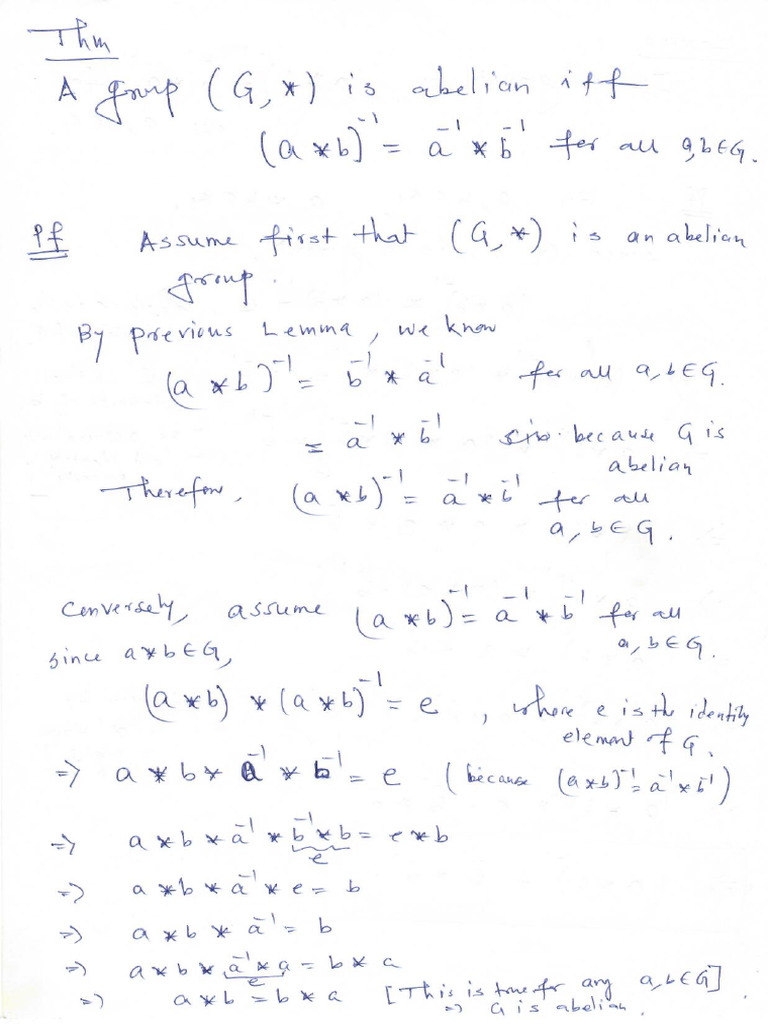 Thm
A group (G, *) is abelian iff
(a * b)⁻¹ = a⁻¹ * b⁻¹ for all a,b ∈ G.
Pf Assume first that (G, *) is an abelian
group.
By previous Lemma, we know
(a * b)⁻¹ = b⁻¹ * a⁻¹ for all a, b ∈ G.
= a⁻¹ * b⁻¹ because G is
abelian
Therefore, (a * b)⁻¹ = a⁻¹ * b⁻¹ for all
a, b ∈ G.
Conversely, assume (a * b)⁻¹ = a⁻¹ * b⁻¹ for all
a, b ∈ G.
since a * b ∈ G,
(a * b) * (a * b)⁻¹ = e , where e is the identity
element of G.
=> a * b * a⁻¹ * b⁻¹ = e (because (a * b)⁻¹ = a⁻¹ * b⁻¹)
=> a * b * a⁻¹ * b⁻¹ * b = e * b
e
=> a * b * a⁻¹ * e = b
=> a * b * a⁻¹ = b
=> a * b * a⁻¹ * a = b * a
e
=> a * b = b * a [This is true for any a, b ∈ G]
=> G is abelian.